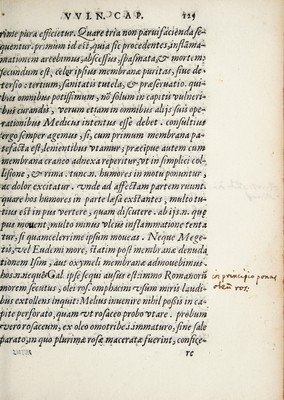 VVLN. CAP. 125
rime pura efficietur. Quare tria non parui faciẽda se
quentur. primum id est, quia sic procedentes, inflãma-
tionem arcebimus, abscessus, spasmata, & mortem:
secundum est, celer ipsius membrana puritas, siue de
tersio: tertium, sanitatis tutela, & præseruatio. qui-
bus omnibus potissimum, nõ solum in capitis vulneri-
bus curandis, verum etiam in omnibus alijs suis ope-
rationibus Medicus intentus esse debet. consultius
ergo semper agemus, si, cum primum membrana pa-
tefacta est, lenientibus vtamur: præcipue autem cum
membrana cranco adnexa reperitur, vt in simplici col-
lisione, & rima. tunc.n. humores in motu ponuntur,
ac dolor excitatur. vnde ad affectam partem ruunt.
quare hos humores in parte læsa existantes, multo tu-
tius est in pus vertere, quam discutere. ab ijs.n. quæ
pus mouent, multo minus vlcus inflammatione tenta
tur, si quam celerrime ipsum moueas. Neque Mege-
tij, vel Eudemi more, statim post membranæ denuda
tionem Isim, aut oxymeli membranæ admouebimus.
hos.n. neque Gal. ipse sequi ausus est: immo Romanorũ
morem secutus, olei ros. omphacini vsum miris laudi-
bus extollens inquit: Melius inuenire nihil possis in ca-
pite perforato, quam vt rosaceo probo vtare. probum
vero rosaceum, ex oleo omotribe.i. immaturo, sine sale
parato, in quo plurimæ rosæ maceratæ fuerint, confice-
re
in principio ponas
oleũ ros.